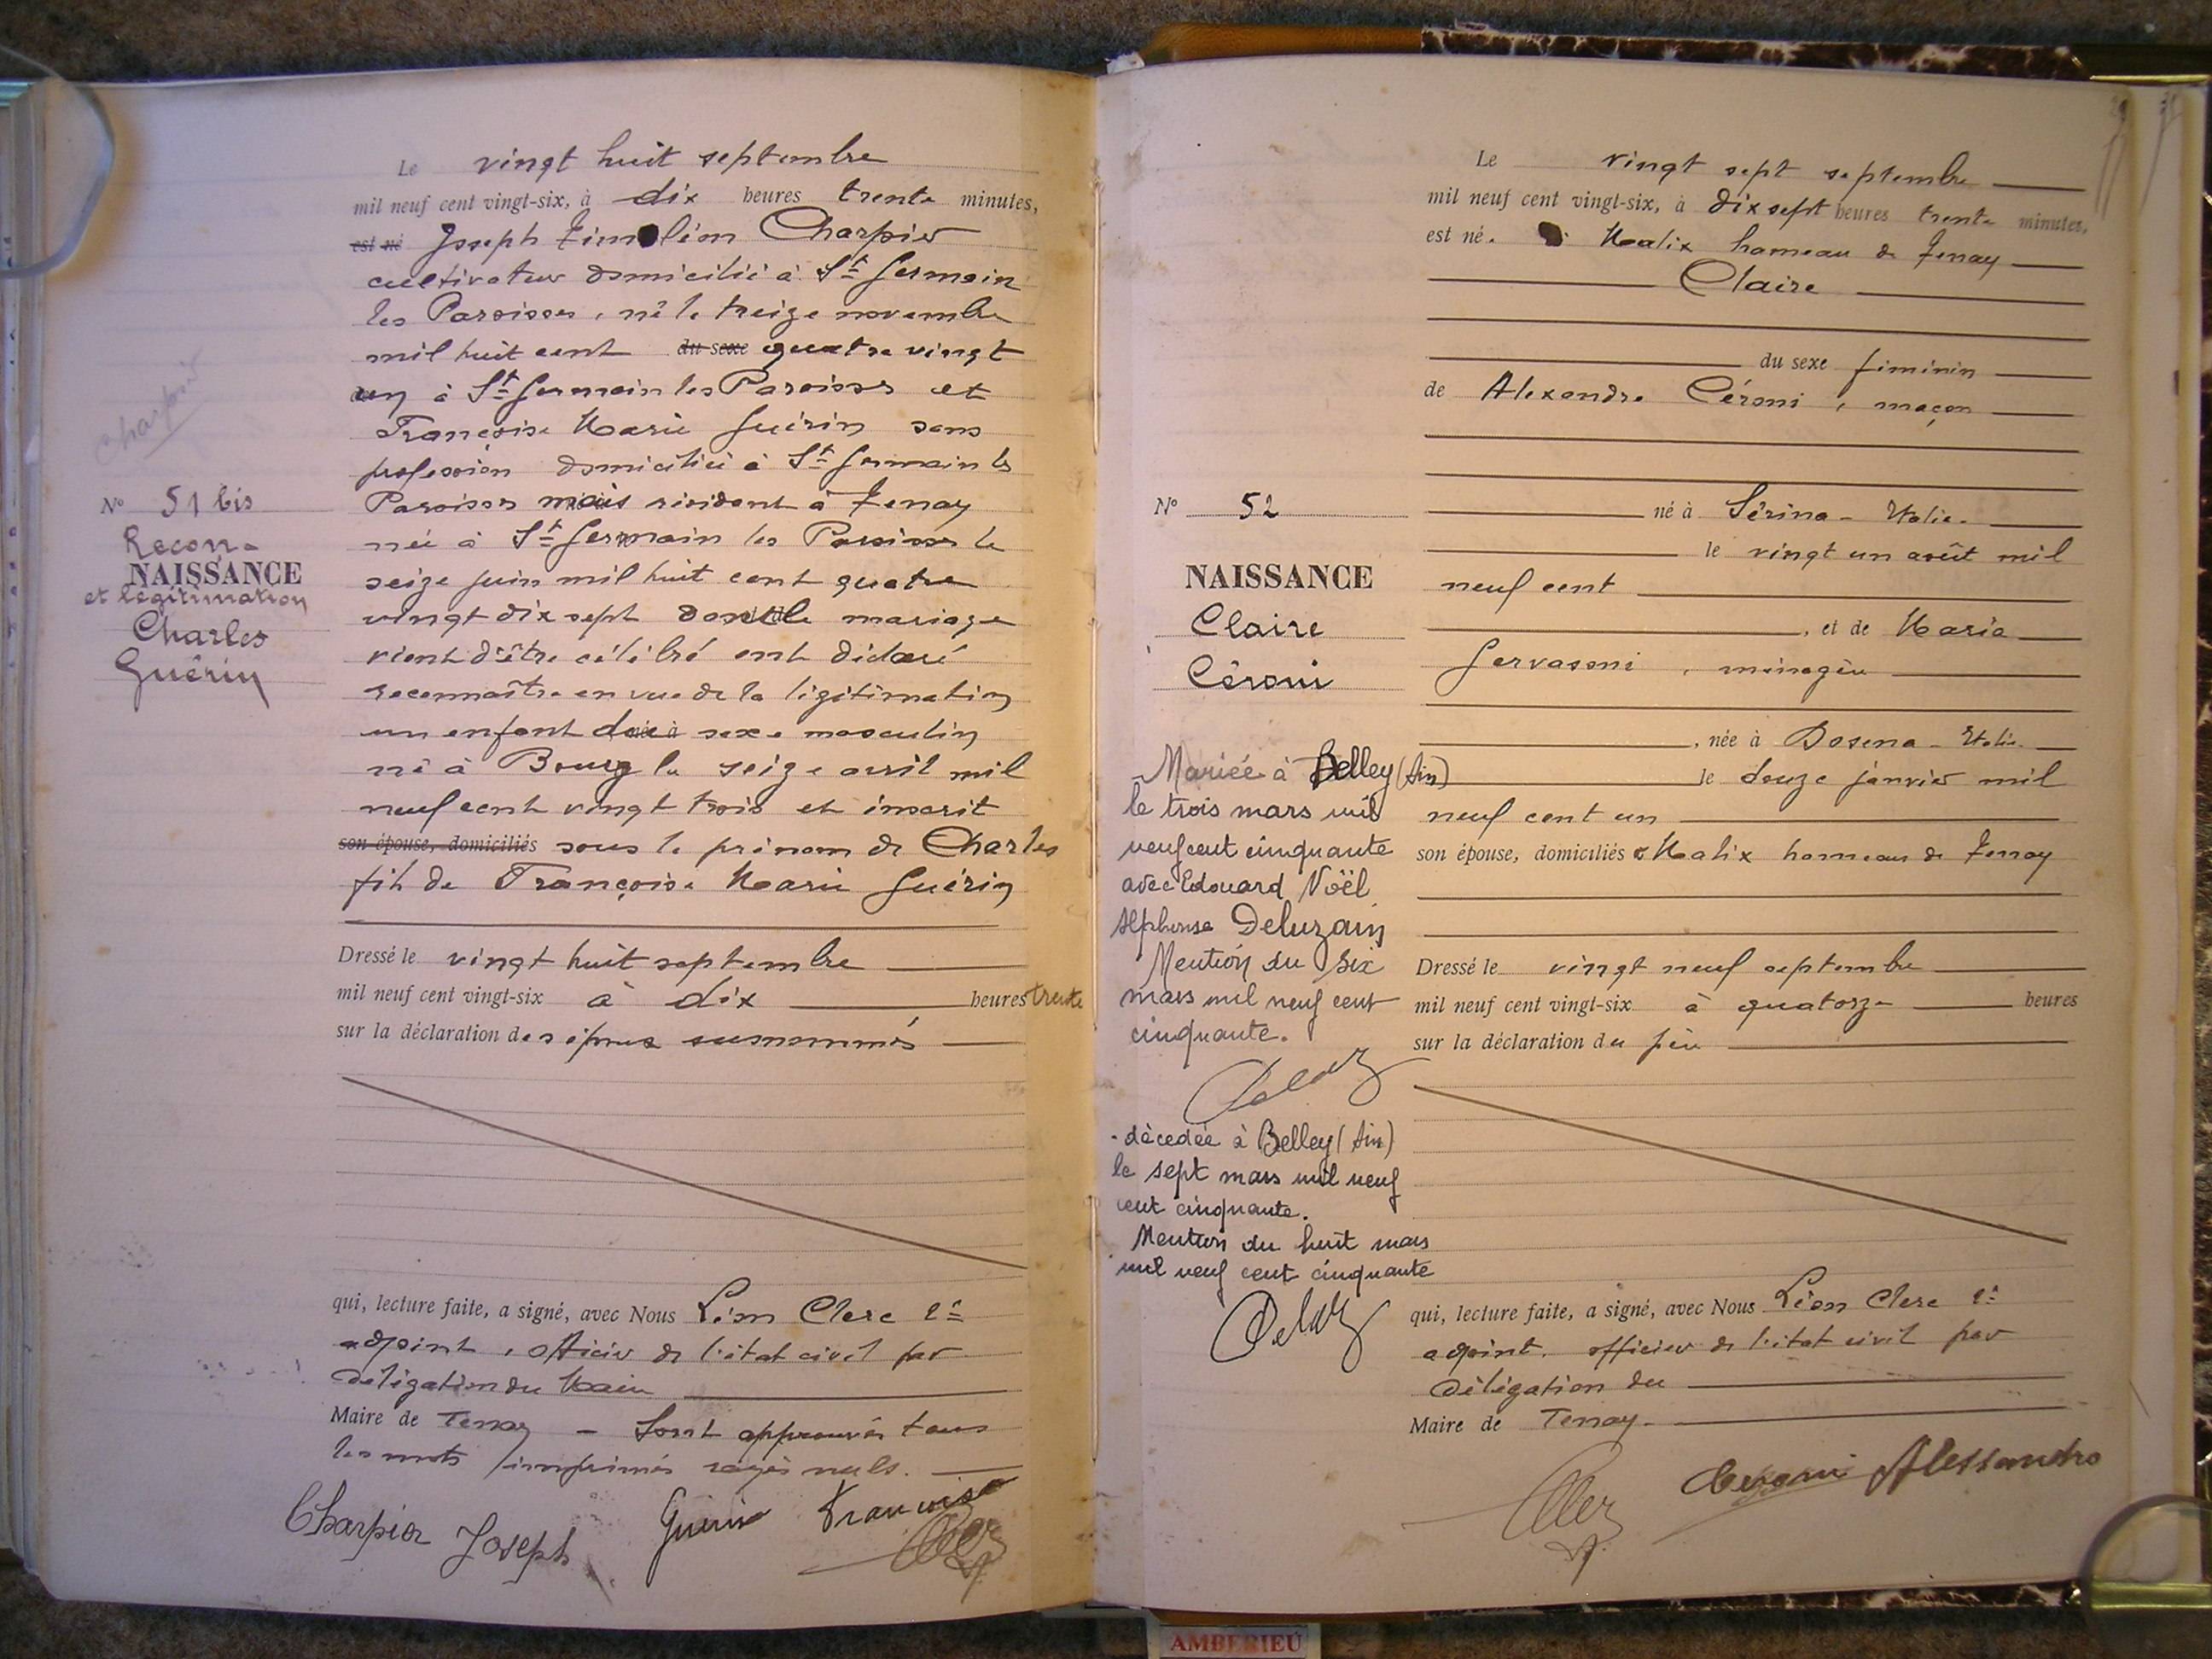 Le vingt huit septembre
mil neuf cent vingt-six, à dix heures trente minutes,
est né Joseph Timoléon Charpier
cultivateur domicilié à St Germain
les Paroisses, né le treize novembre
mil huit cent du sexe quatre vingt
un à St Germain les Paroisses et
Françoise Marie Guérin sans
profession domiciliée à St Germain les
Paroisses mais résidant à Tenay
née à St Germain les Paroisses le
seize juin mil huit cent quatre
vingt dix sept dont le mariage
vient d'être célébré ont déclaré
reconnaître en vue de la légitimation
un enfant du sexe masculin
né à Bourg le seize avril mil
neuf cent vingt trois et inscrit
son épouse, domiciliés sous le prénom de Charles
fils de Françoise Marie Guérin
Dressé le vingt huit septembre
mil neuf cent vingt-six à dix heures trente
sur la déclaration des époux susnommés
qui, lecture faite, a signé, avec Nous Léon Clerc 1er
adjoint, officier de l'état civil par
délégation du Maire
Maire de Tenay - Sont approuvés tous
les mots imprimés rayés nuls.
Charpier Joseph Guérin Françoise
Charpier
No 51 bis
Recon-
NAISSANCE
et légitimation
Charles
Guérin
Le vingt sept septembre
mil neuf cent vingt-six, à dix sept heures trente minutes,
est né à Malix hameau de Tenay
Claire
du sexe féminin
de Alexandre Céroni, maçon
né à Sérina - Italie.
le vingt un août mil
neuf cent
, et de Maria
Gervasoni, ménagère
, née à Bosena - Italie.
le douze janvier mil
neuf cent un
son épouse, domiciliés à Malix hameau de Tenay
Dressé le vingt neuf septembre
mil neuf cent vingt-six à quatorze heures
sur la déclaration du père
qui, lecture faite, a signé, avec Nous Léon Clerc 1er
adjoint, officier de l'état civil par
délégation du
Maire de Tenay.
Ceroni Alessandro
No 52
NAISSANCE
Claire
Céroni
Mariée à Belley (Ain)
le trois mars mil
neuf cent cinquante
avec Edouard Noël
Alphonse Deluzain
Mention du six
mars mil neuf cent
cinquante.
décedée à Belley (Ain)
le sept mars mil neuf
cent cinquante.
Mention du huit mars
mil neuf cent cinquante
AMBERIEU